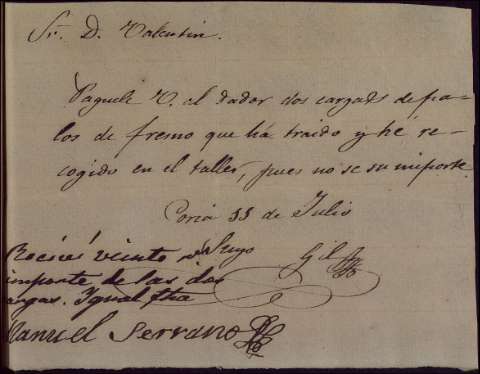 Sr. D. Valentin.
Paguele V. al dador dos cargads de pa-
los de fresno que há traido y hé re-
cogido en el taller, pues no se su importe.
Coria 11 de Julio
Suyo
Gil
Recivi veinte
importe de las dos
argas. Ygual fha
Manuel Serrano